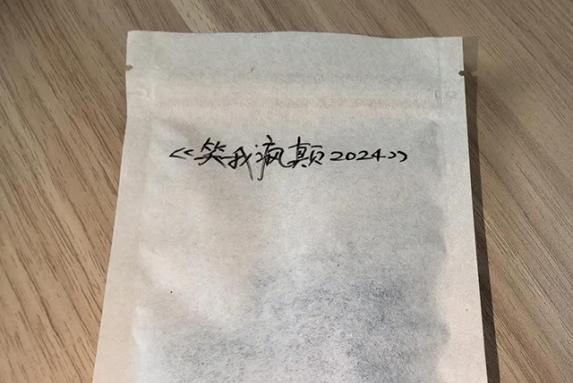 《笑我疯颠2024》